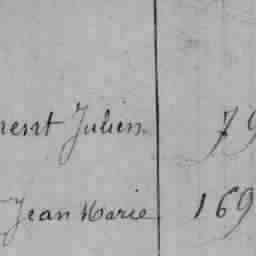 nent Julien 79
Jean Marie 169